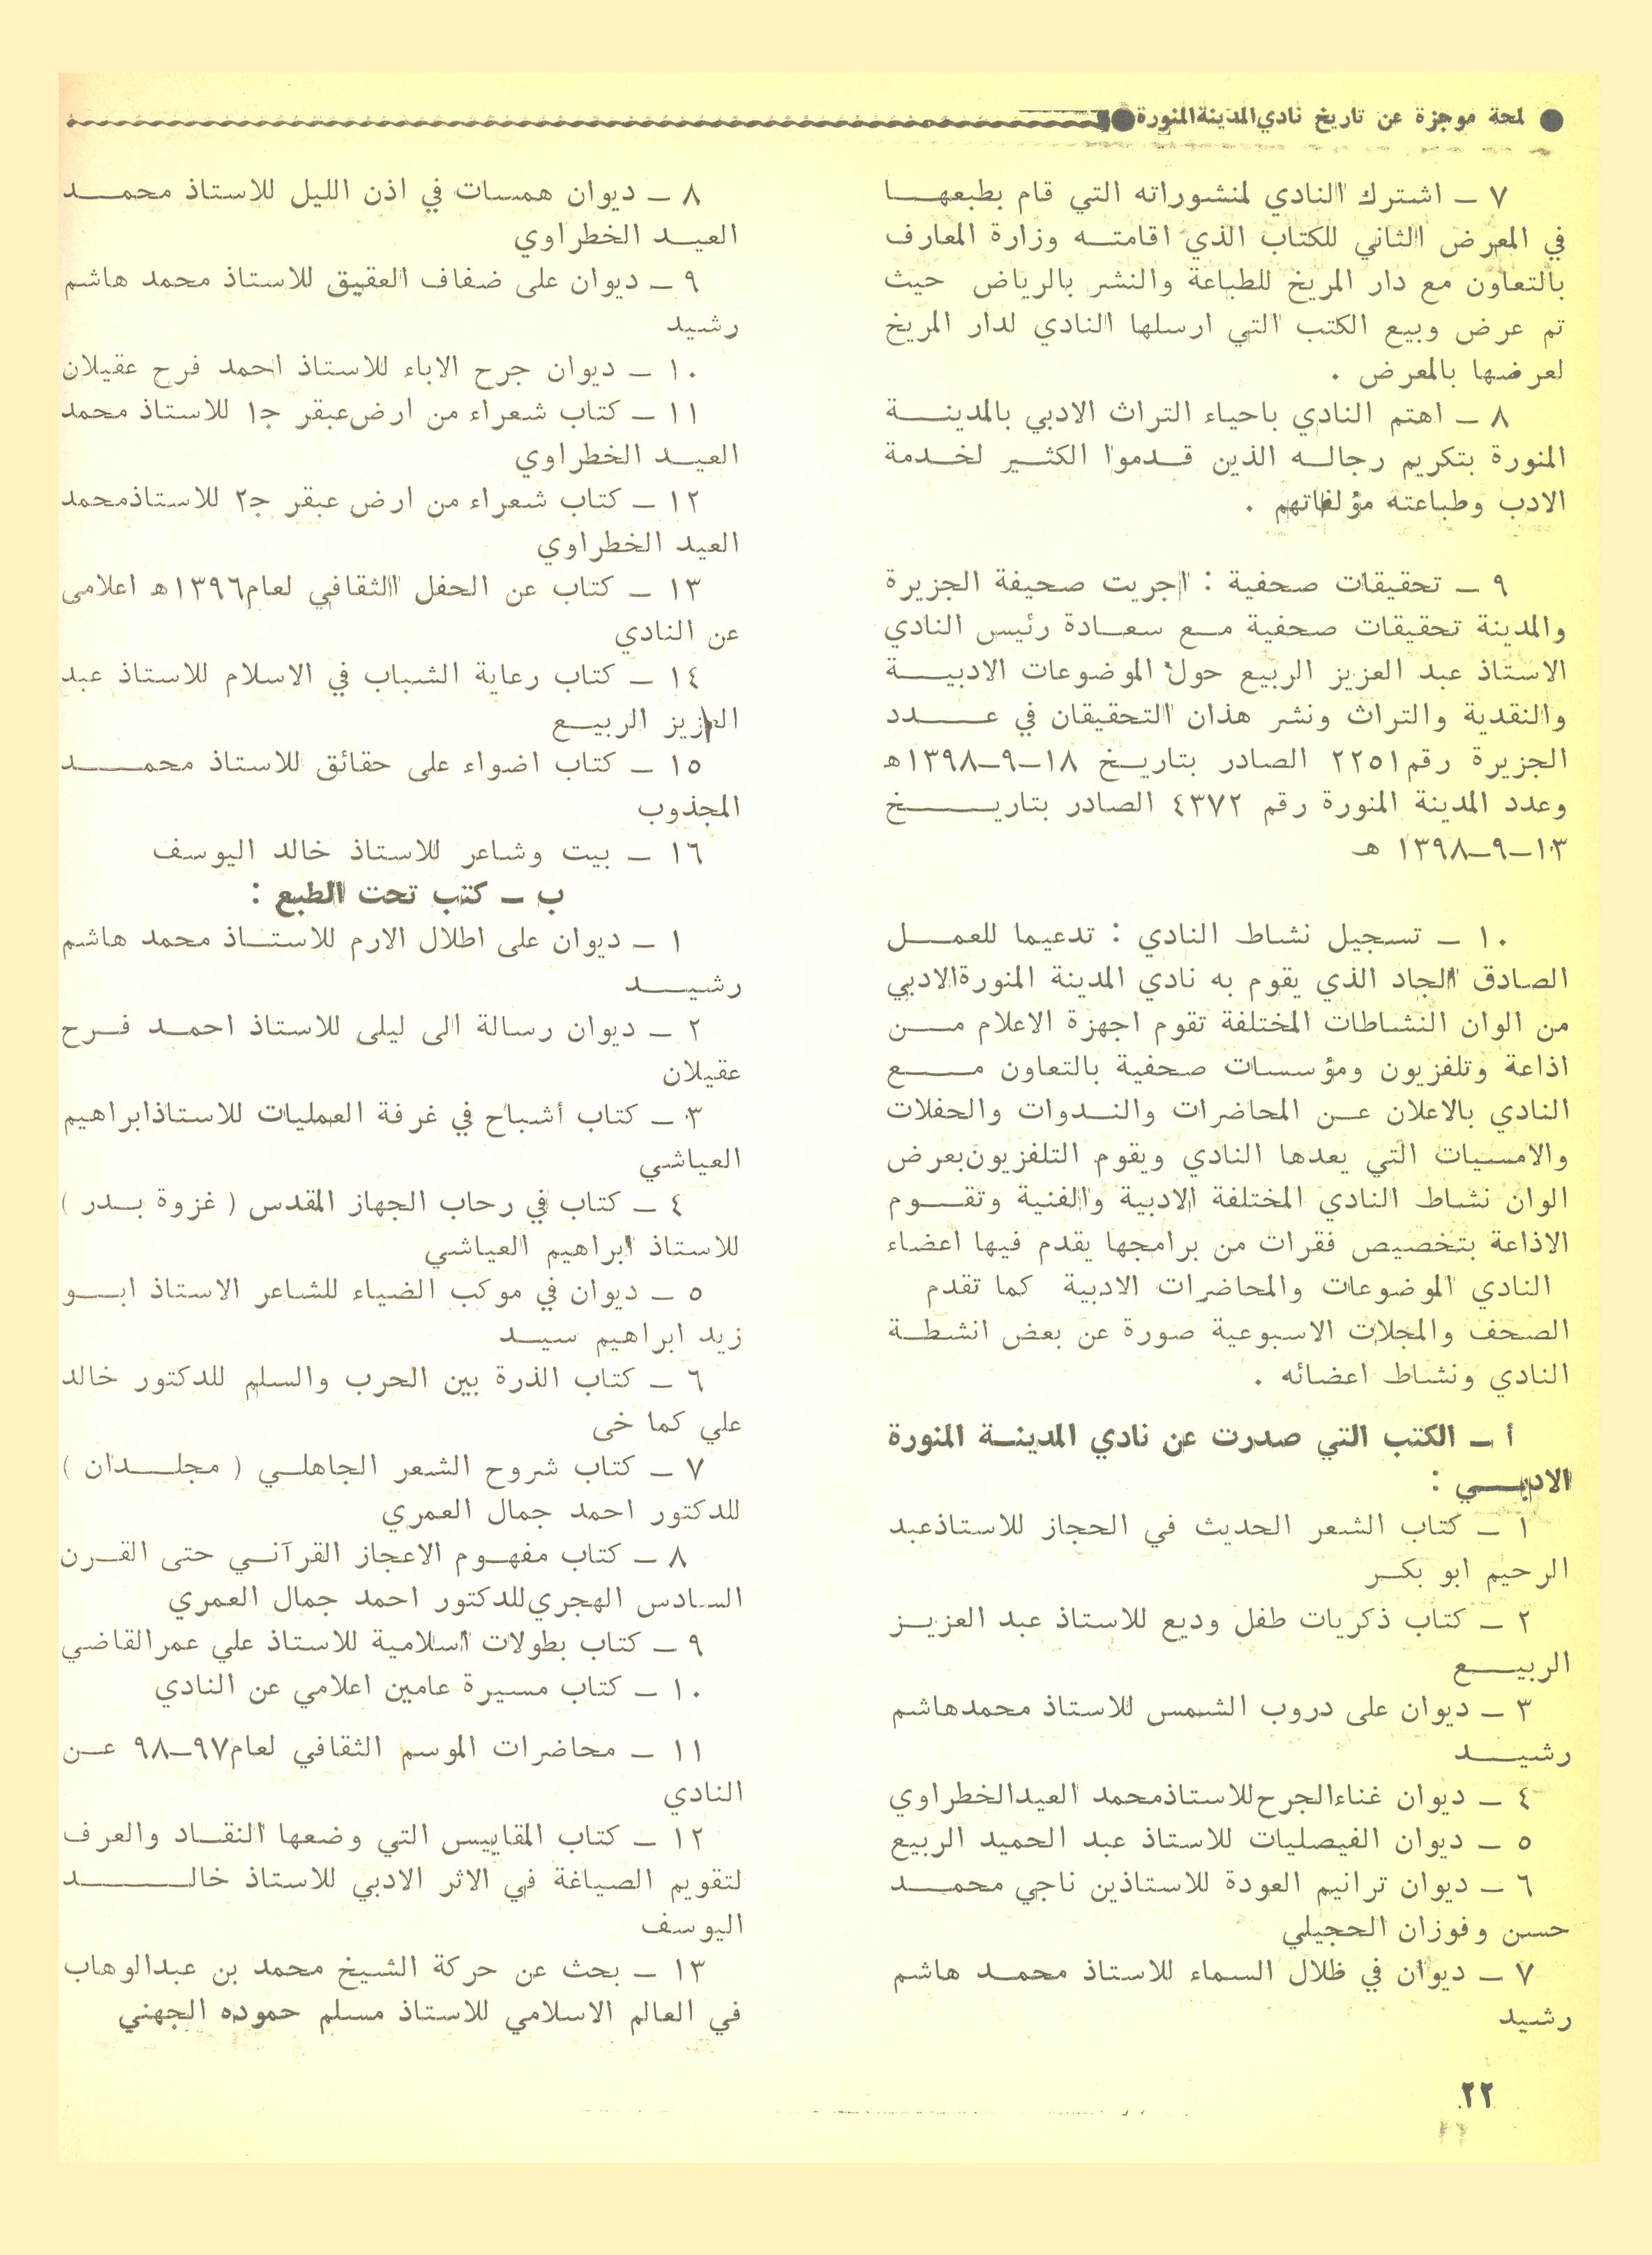 ● لمحة موجزة عن تاريخ نادي المدينة المنورة ●
٧ ــ اشترك النادي لمنشوراته التي قام بطبعها
في المعرض الثاني للكتاب الذي اقامته وزارة المعارف
بالتعاون مع دار المريخ للطباعة والنشر بالرياض حيث
تم عرض وبيع الكتب التي ارسلها النادي لدار المريخ
لعرضها بالمعرض .
٨ ــ اهتم النادي باحياء التراث الادبي بالمدينة
المنورة بتكريم رجاله الذين قدموا الكثير لخدمة
الادب وطباعته مؤلفاتهم .
٩ ــ تحقيقات صحفية : اجريت صحيفة الجزيرة
والمدينة تحقيقات صحفية مع سعادة رئيس النادي
الاستاذ عبد العزيز الربيع حول الموضوعات الادبية
والنقدية والتراث ونشر هذان التحقيقان في عدد
الجزيرة رقم ٢٢٥١ الصادر بتاريخ ١٨ــ٩ــ١٣٩٨ه
وعدد المدينة المنورة رقم ٤٣٧٢ الصادر بتاريخ
١٣ــ٩ــ١٣٩٨ هـ
١٠ ــ تسجيل نشاط النادي : تدعيما للعمل
الصادق الجاد الذي يقوم به نادي المدينة المنورة الادبي
من الوان النشاطات المختلفة تقوم اجهزة الاعلام من
اذاعة وتلفزيون ومؤسسات صحفية بالتعاون مع
النادي بالاعلان عن المحاضرات والندوات والحفلات
والامسيات التي يعدها النادي ويقوم التلفزيون بعرض
الوان نشاط النادي المختلفة الادبية والفنية وتقوم
الاذاعة بتخصيص فقرات من برامجها يقدم فيها اعضاء
النادي الموضوعات والمحاضرات الادبية كما تقدم
الصحف والمجلات الاسبوعية صورة عن بعض انشطة
النادي ونشاط اعضائه .
أ ــ الكتب التي صدرت عن نادي المدينة المنورة
الادبي :
١ ــ كتاب الشعر الحديث في الحجاز للاستاذ عبد
الرحيم ابو بكر
٢ ــ كتاب ذكريات طفل وديع للاستاذ عبد العزيز
الربيع
٣ ــ ديوان على دروب الشمس للاستاذ محمد هاشم
رشيد
٤ ــ ديوان غناء الجرح للاستاذ محمد العيد الخطراوي
٥ ــ ديوان الفيصليات للاستاذ عبد الحميد الربيع
٦ ــ ديوان ترانيم العودة للاستاذين ناجي محمد
حسن وفوزان الحجيلي
٧ ــ ديوان في ظلال السماء للاستاذ محمد هاشم
رشيد
٨ ــ ديوان همسات في اذن الليل للاستاذ محمد
العيد الخطراوي
٩ ــ ديوان على ضفاف العقيق للاستاذ محمد هاشم
رشيد
١٠ ــ ديوان جرح الاباء للاستاذ احمد فرح عقيلان
١١ ــ كتاب شعراء من ارض عبقر ج١ للاستاذ محمد
العيد الخطراوي
١٢ ــ كتاب شعراء من ارض عبقر ج٢ للاستاذ محمد
العيد الخطراوي
١٣ ــ كتاب عن الحفل الثقافي لعام ١٣٩٦ه اعلامى
عن النادي
١٤ ــ كتاب رعاية الشباب في الاسلام للاستاذ عبد
العزيز الربيع
١٥ ــ كتاب اضواء على حقائق للاستاذ محمد
المجذوب
١٦ ــ بيت وشاعر للاستاذ خالد اليوسف
ب ــ كتب تحت الطبع :
١ ــ ديوان على اطلال الارم للاستاذ محمد هاشم
رشيد
٢ ــ ديوان رسالة الى ليلى للاستاذ احمد فرح
عقيلان
٣ ــ كتاب أشباح في غرفة العمليات للاستاذ ابراهيم
العياشي
٤ ــ كتاب في رحاب الجهاز المقدس ( غزوة بدر )
للاستاذ ابراهيم العياشي
٥ ــ ديوان في موكب الضياء للشاعر الاستاذ ابو
زيد ابراهيم سيد
٦ ــ كتاب الذرة بين الحرب والسلم للدكتور خالد
علي كما خى
٧ ــ كتاب شروح الشعر الجاهلي ( مجلدان )
للدكتور احمد جمال العمري
٨ ــ كتاب مفهوم الاعجاز القرآني حتى القرن
السادس الهجري للدكتور احمد جمال العمري
٩ ــ كتاب بطولات اسلامية للاستاذ علي عمر القاضي
١٠ ــ كتاب مسيرة عامين اعلامي عن النادي
١١ ــ محاضرات الموسم الثقافي لعام ٩٧ــ٩٨ عن
النادي
١٢ ــ كتاب المقاييس التي وضعها النقاد والعرف
لتقويم الصياغة في الاثر الادبي للاستاذ خالد
اليوسف
١٣ ــ بحث عن حركة الشيخ محمد بن عبدالوهاب
في العالم الاسلامي للاستاذ مسلم حموده الجهني
٢٢